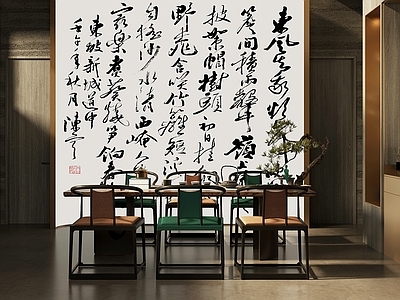 東風知我欲
簷間積雨聲嶺上
披絮帽樹頭初日掛
野桃含笑竹籬短溪
自搖沙水清西崦人
最樂煮芹燒笋餉春
東坡新城道中
壬午年秋月